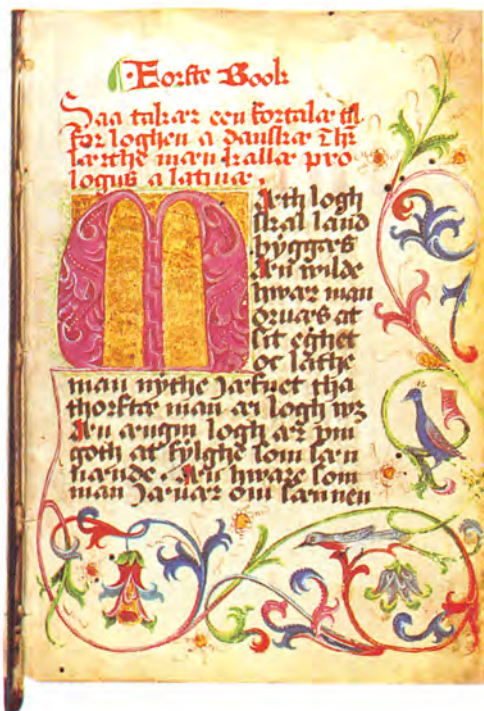 Forste Book
Saa takær een fortalæ til
for loghen a danskæ Thr
lærthe mæn kallæ pro
logus a latinæ.
Mæth logh
skal land
byggæs
Æn wilde
hwar man
oruæs at
sit eghet
oc lathe
man nythe Jæfnet tha
thorftæ man æi logh wz
Æn ængin logh ær ṿm
goth at fylghe som san
nænde. Æn hware som
man Jæuær om sannen